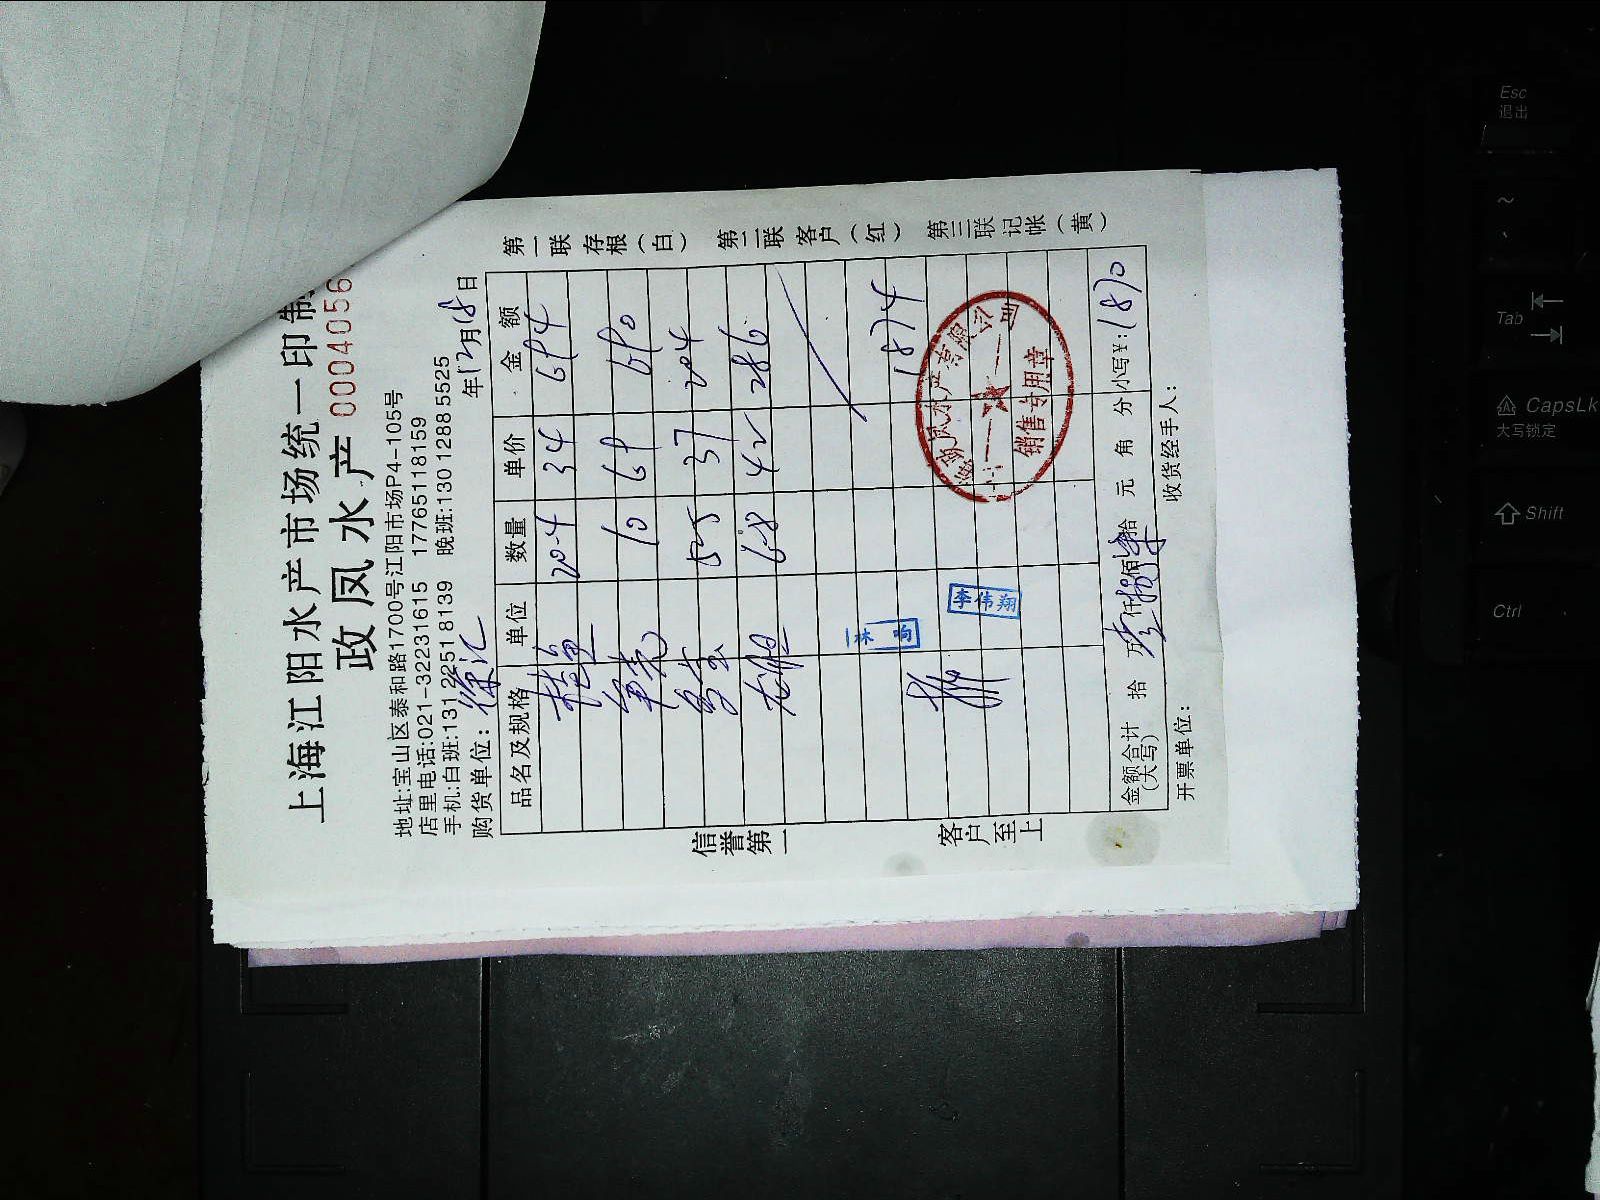 上海江阳水产市场统一印制
政凤水产 0004056
地址:宝山区泰和路1700号江阳市场P4-105号
店里电话:021-32231615 17765118159
手机:白班:131 2251 8139 晚班:130 1288 5525
购货单位: 徐汇 年12月18日
品名及规格 单位 数量 单价 金额
桂鱼 20.4 34 694
10 69 690
5.5 37 204
6.8 42 286
1874
李伟翔
销售专用章
金额合计(大写) 拾 万 仟 佰 拾 元 角 分 小写¥:1870
开票单位: 收货经手人:
信誉第一 客户至上
第一联存根(白) 第二联客户(红) 第三联记帐(黄)
Esc
退出
Tab
CapsLk
大写锁定
Shift
Ctrl